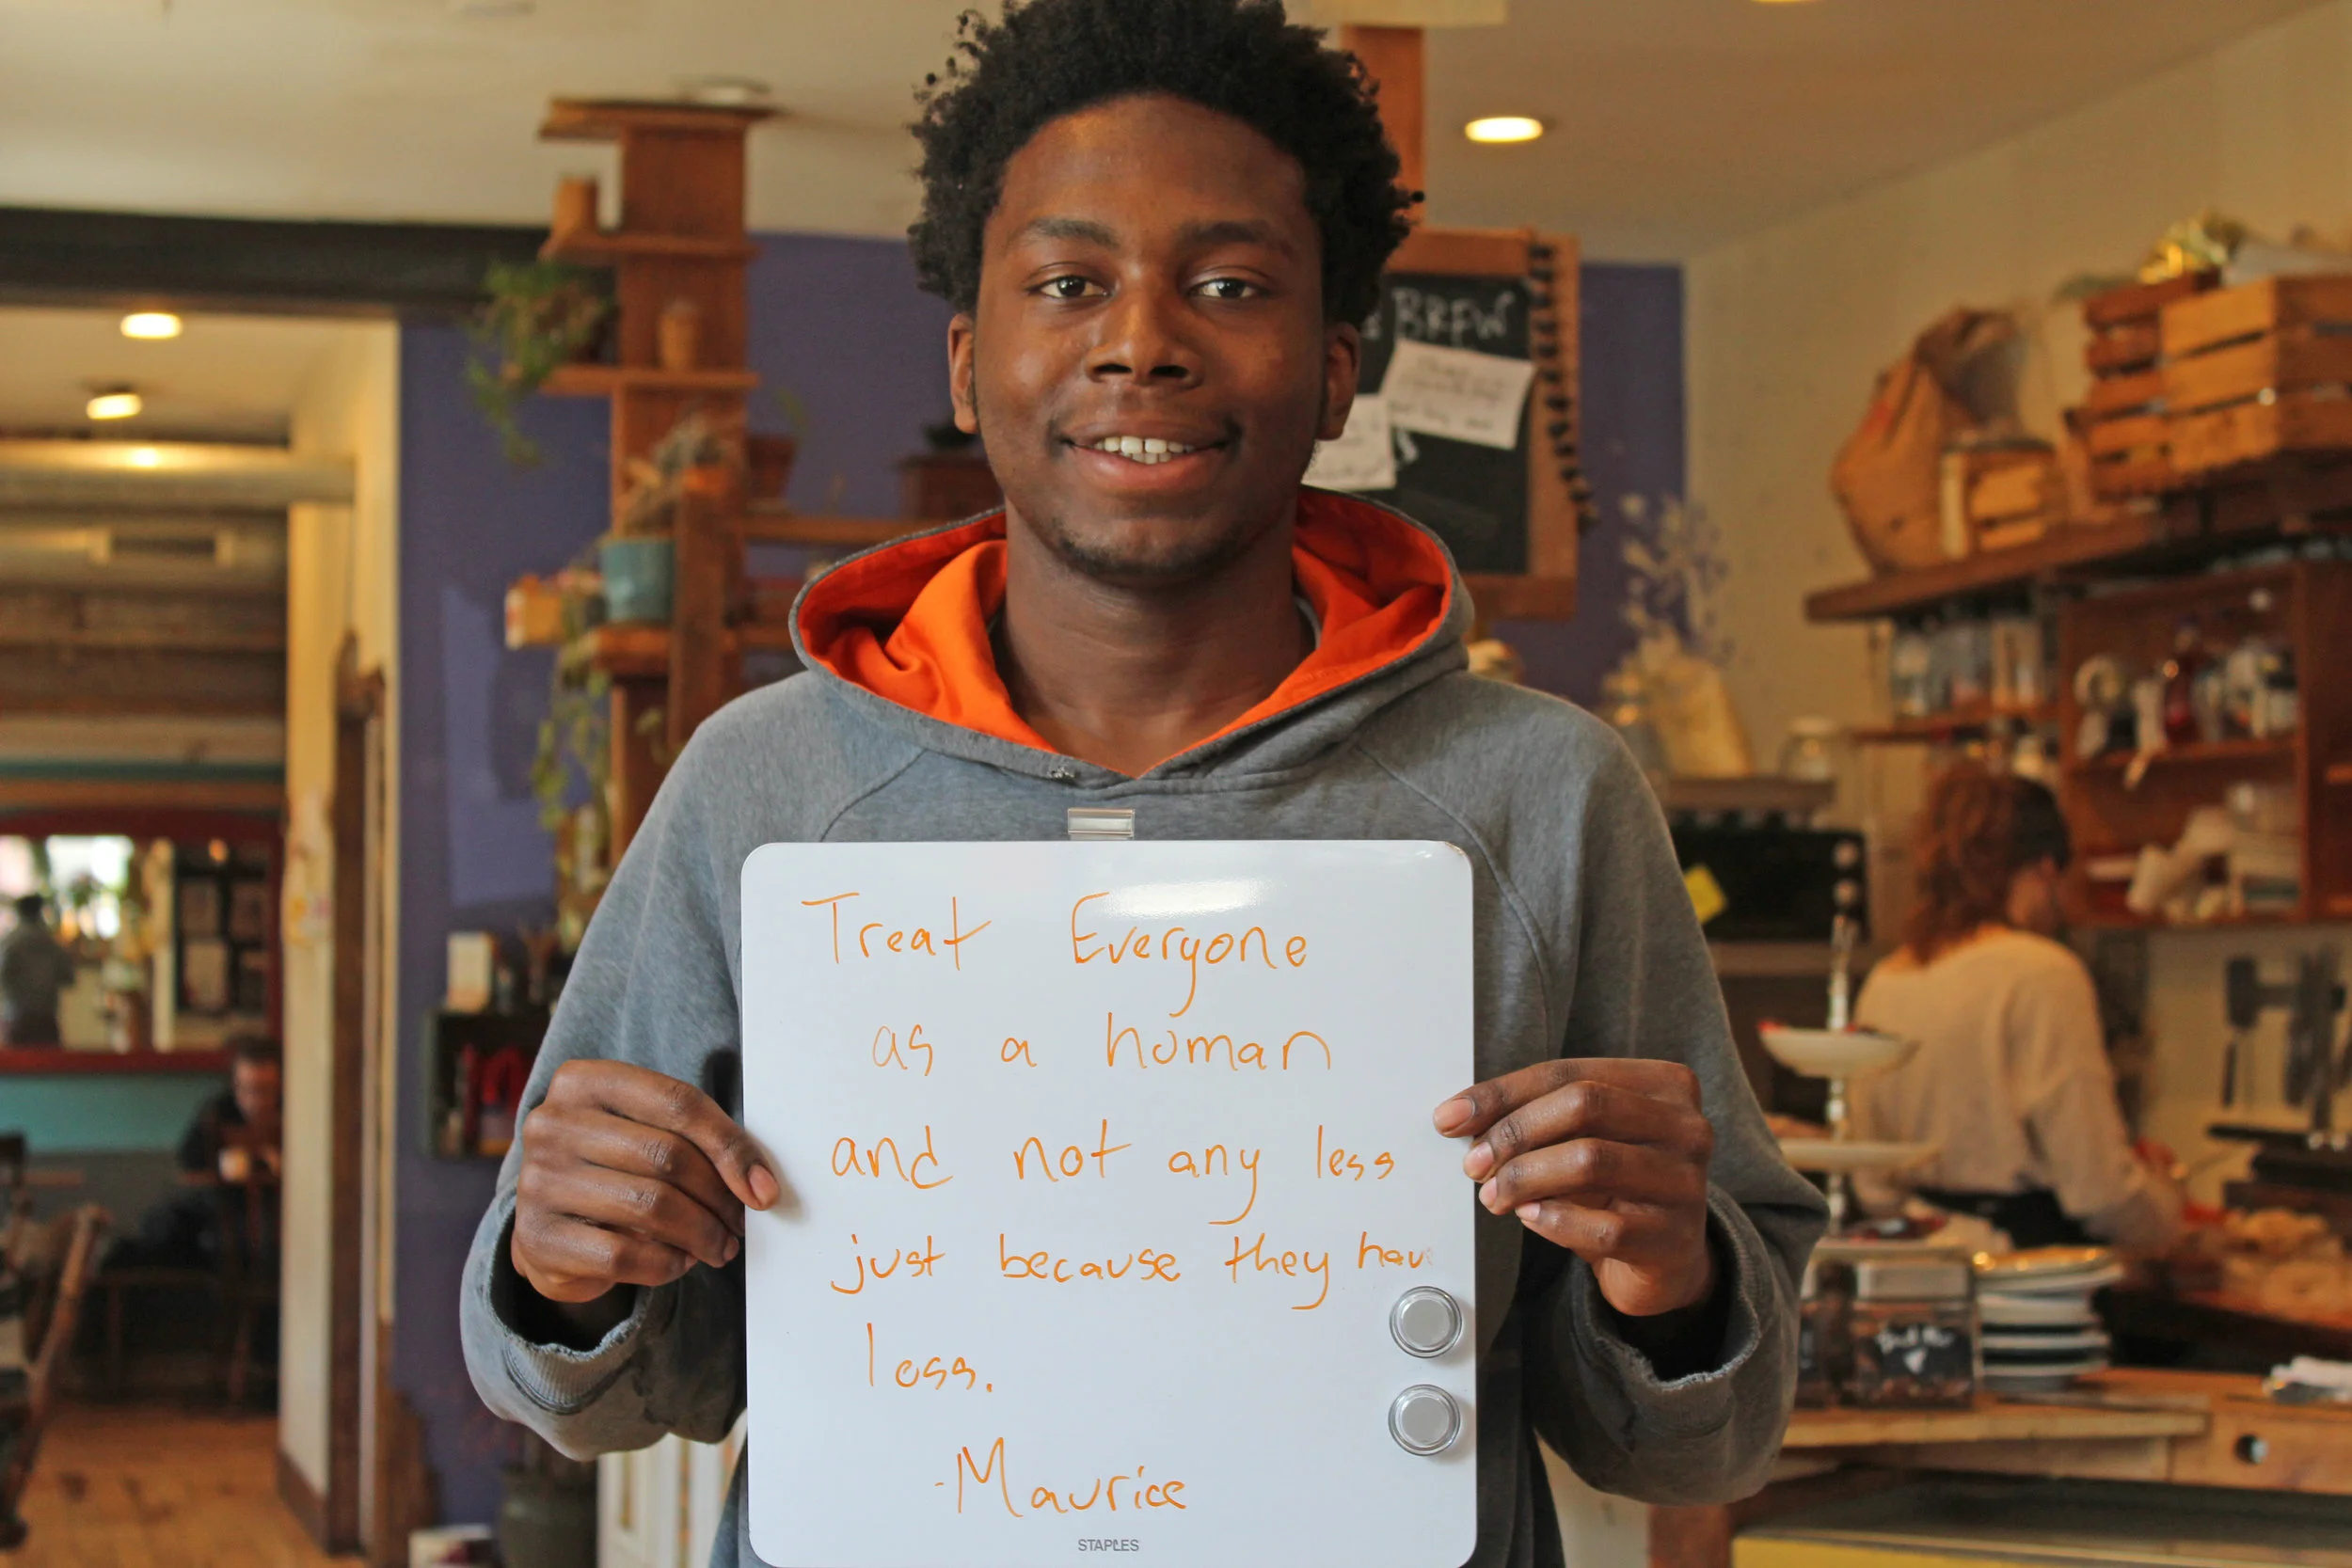 BREW
Treat Everyone
as a human
and not any less
just because they hav
less.
-Maurice
STAPLES